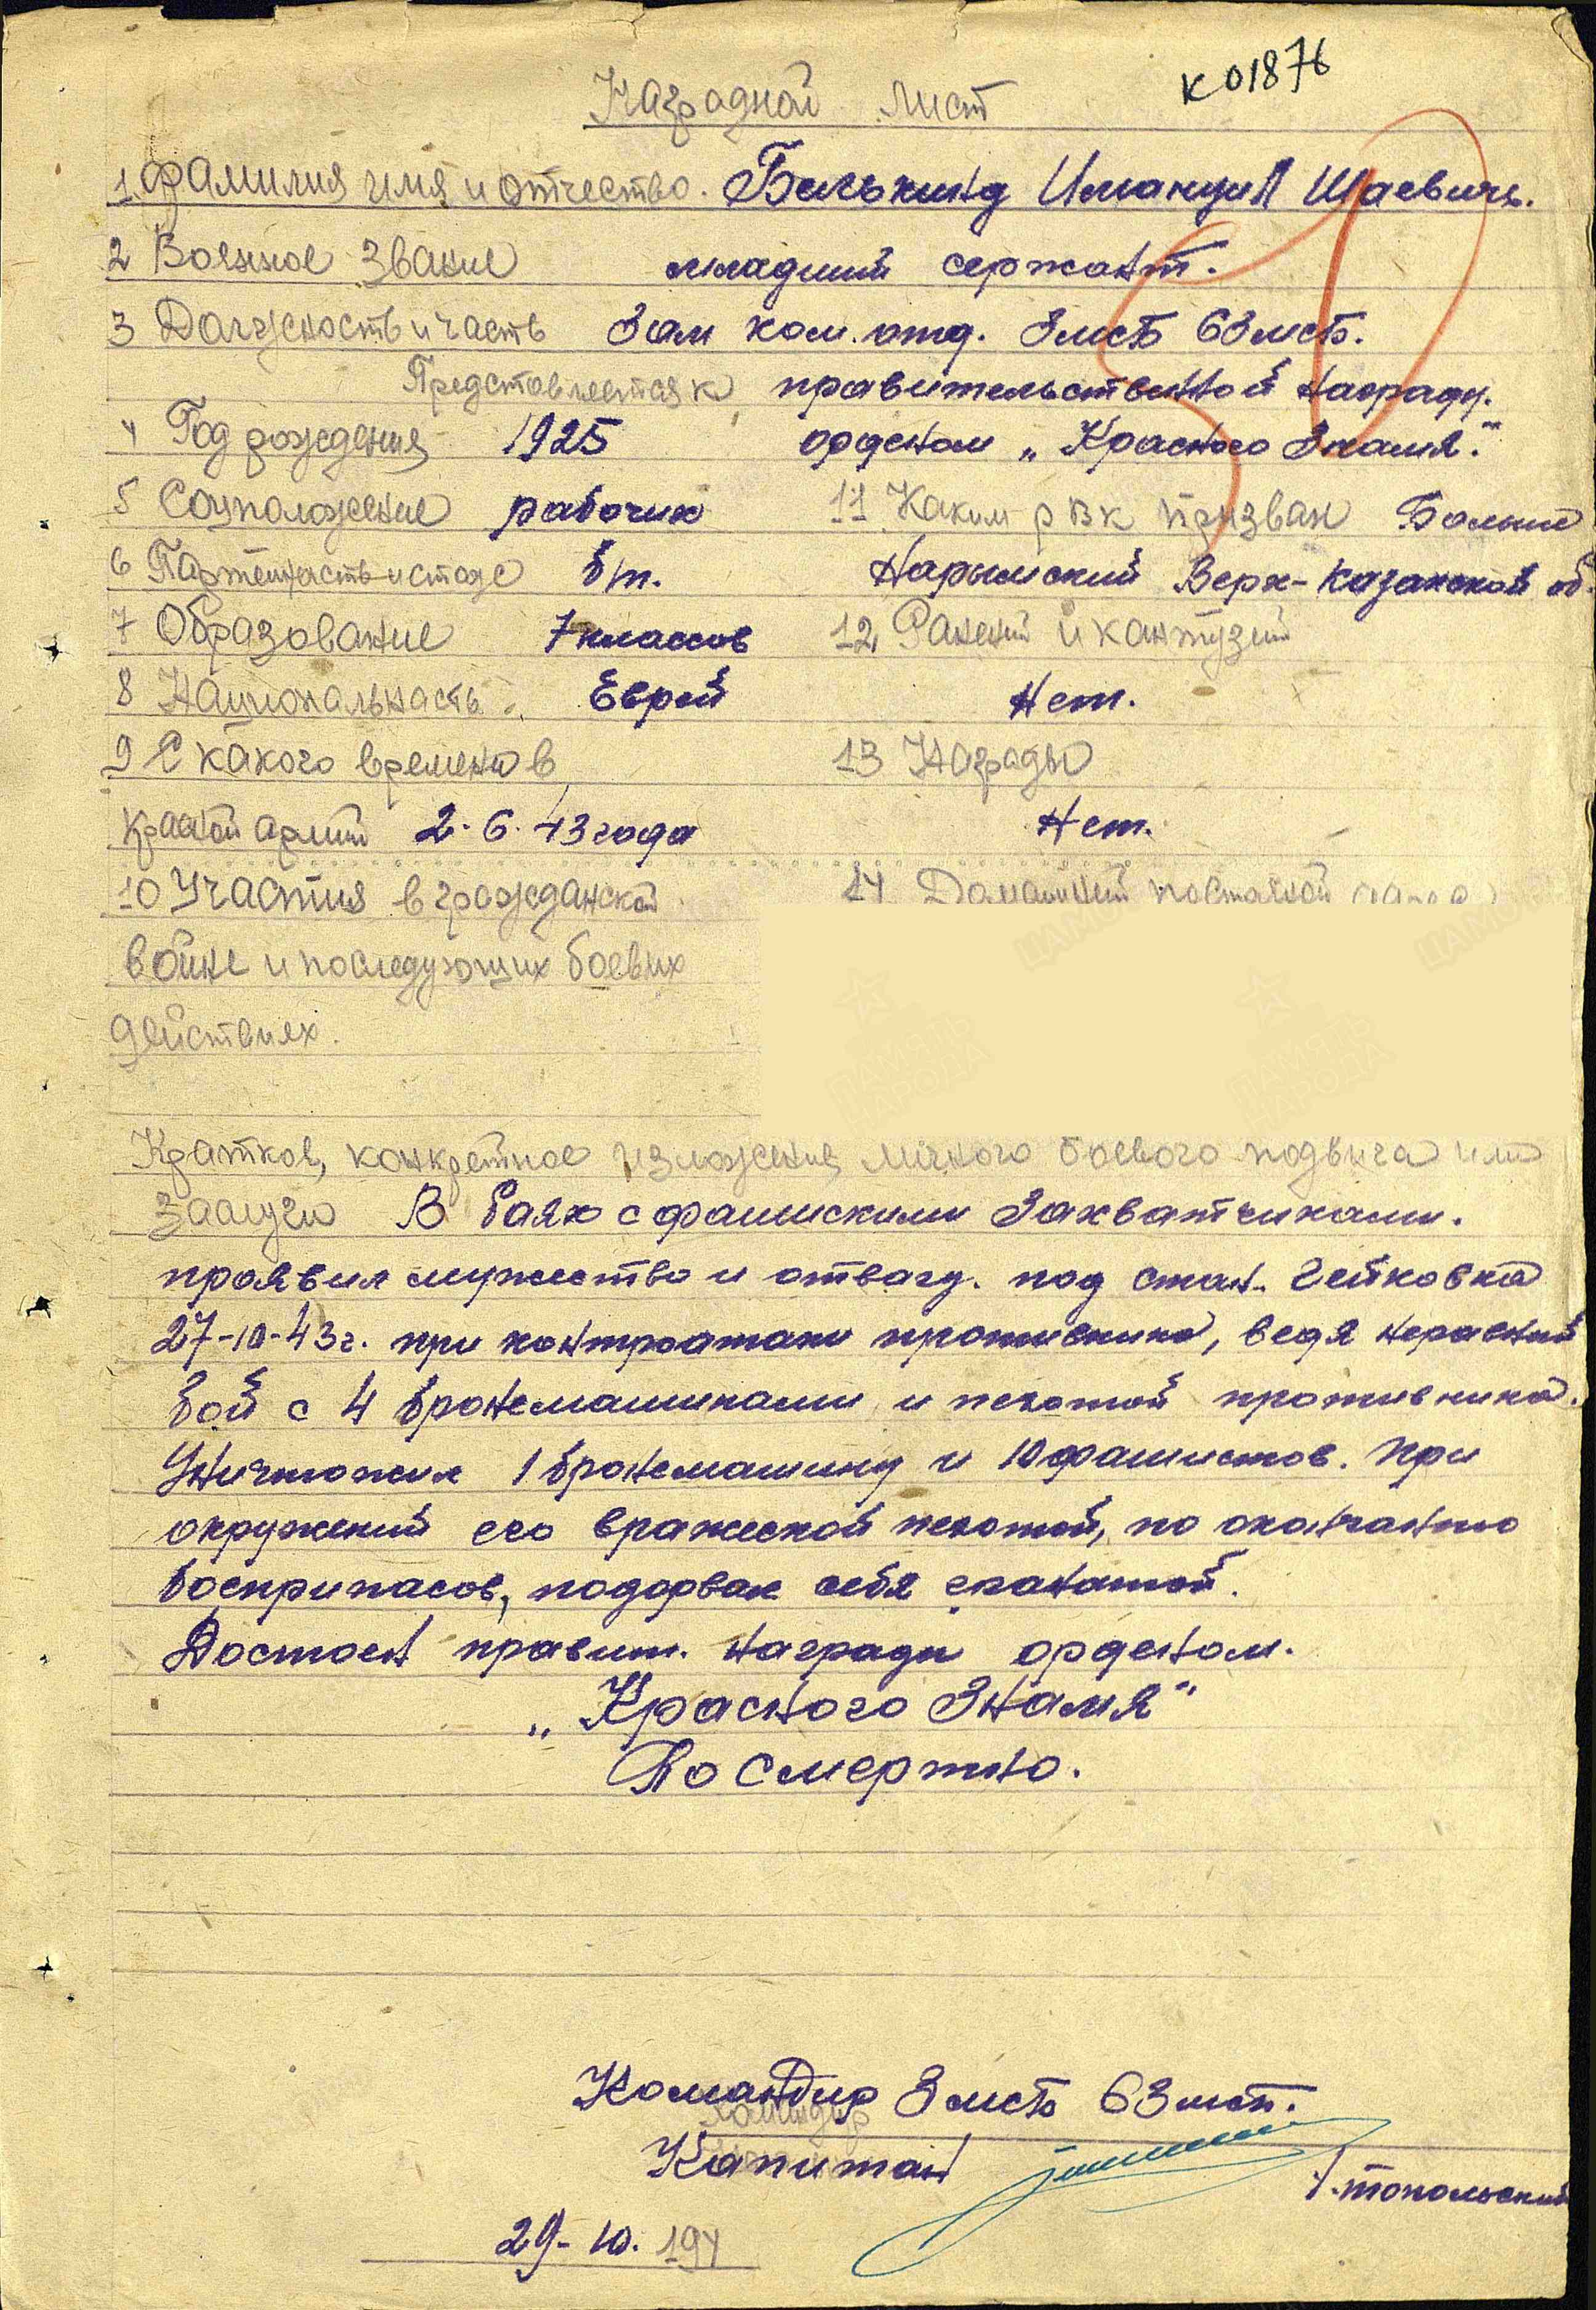 К01876
Наградной лист
1. Фамилия имя и отчество. Белькинд Имануил Шаевичь.
2 Военное звание младший сержант.
3 Должность и часть Зам ком. отд. 3мсб 63мсб.
Представляется к правительственной награду.
4 Год рождения 1925 орденом „Красного Знамя."
5 Соцположение рабочих 11. Каким рвк призван Больше
6 Партейность и стаж б/п. Нарымский Верх-Казанской об.
7 Образование 7 классов 12, Ранений и кантузий
8 Национальнасть. Еврей Нет.
9 С какого времени в 13 Награды
красной армии 2.6.43 года Нет.
10 Участия в гражданской 14 Домашний постояной
войне и последующих боевых
действиях.
Краткое, конкретное изложение личного боевого подвига или
заслуги В баях с фашискими захватчиками.
проявил мужество и отвагу. под стан. Гейковка
27-10-43г. при контратаки противника, ведя неравный
бой с 4 бронемашинами и пехотой противника.
Уничтожил 1 бронемашину и 10 фашистов. При
окружений его вражеской пехотой, по окончанию
боеприпасов, подорвал себя гранатой.
Достоен правит. награды орденом.
„Красного Знамя"
По смертно.
Командир 3мсб 63мсп.
Капитан Топольский
29-10. 194